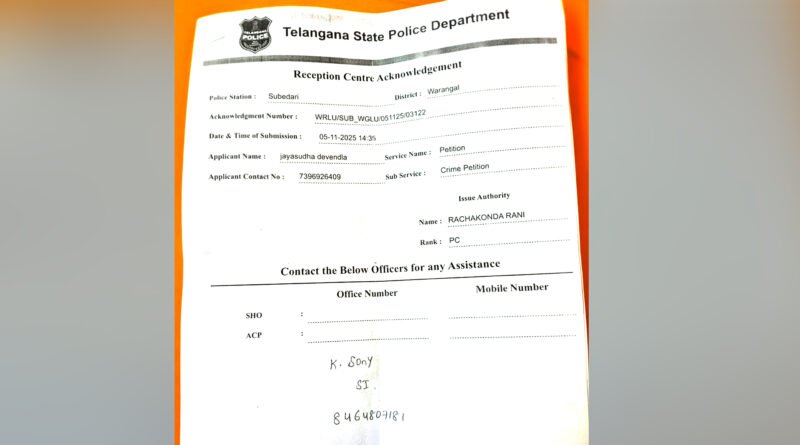 TELANGANA
POLICE
Telangana State Police Department
Reception Centre Acknowledgement
Police Station : Subedari District : Warangal
Acknowledgment Number : WRLU/SUB_WGLU/051125/03122
Date & Time of Submission : 05-11-2025 14:35
Applicant Name : jayasudha devendla Service Name : Petition
Applicant Contact No : 7396926409 Sub Service : Crime Petition
Issue Authority
Name : RACHAKONDA RANI
Rank : PC
Contact the Below Officers for any Assistance
Office Number Mobile Number
SHO :
ACP :
K. Sony
SI.
8464807181